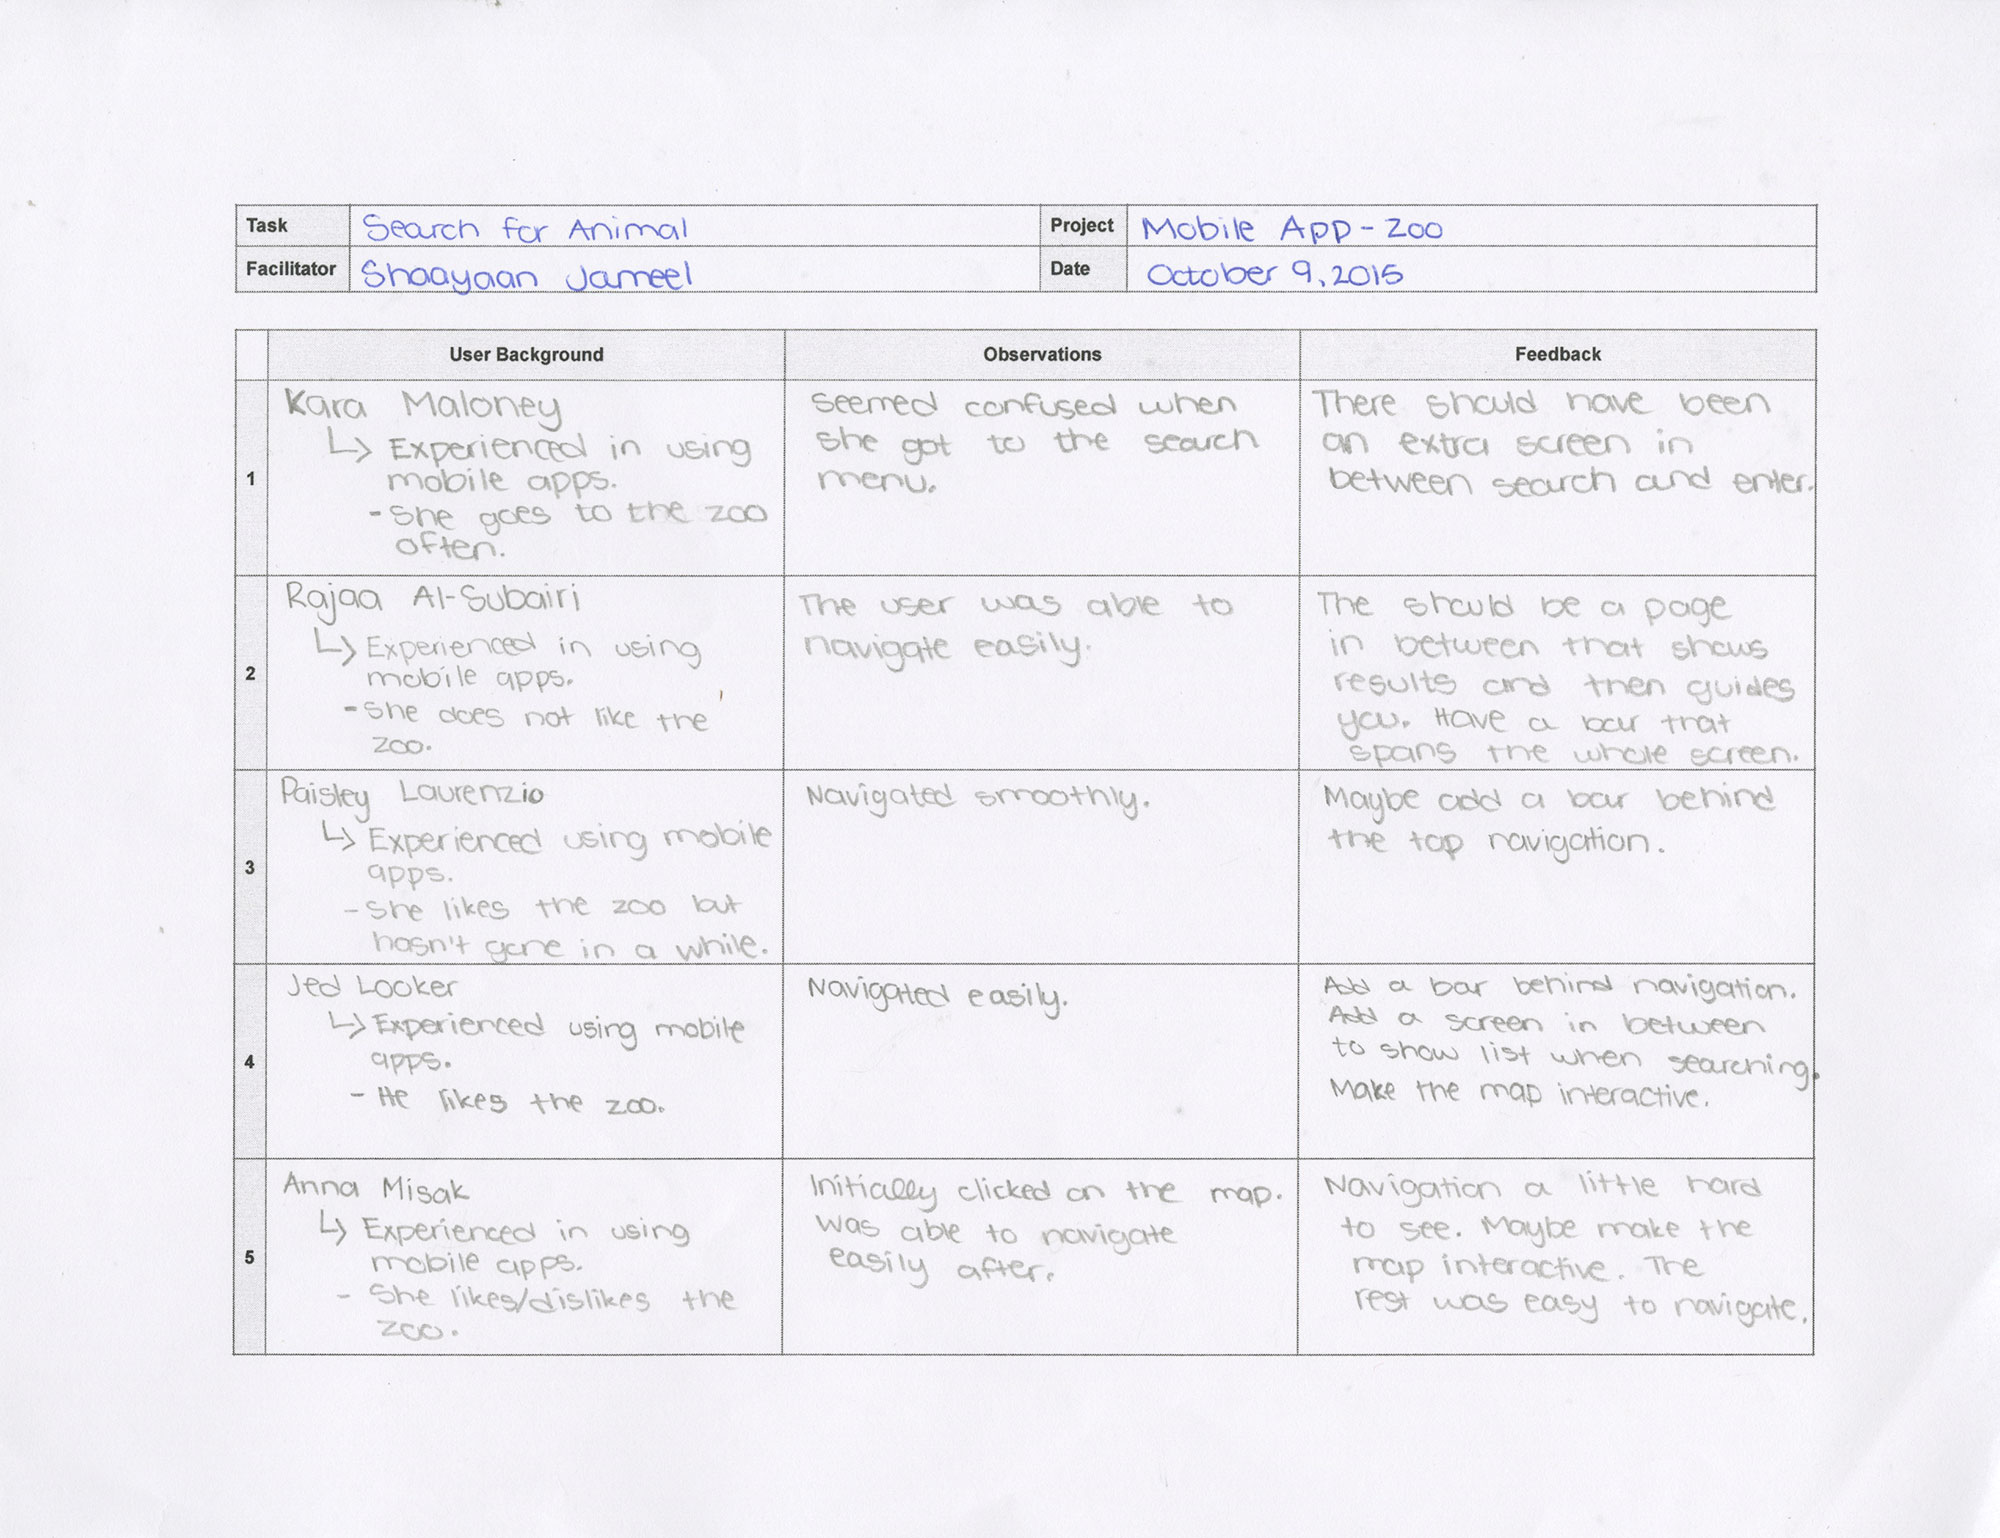 Task Search for Animal Project Mobile App - Zoo
Facilitator Shaayaan Jameel Date October 9, 2015
User Background Observations Feedback
1
Kara Maloney
↳ Experienced in using
mobile apps.
- She goes to the zoo
often.
Seemed confused when
she got to the search
menu.
There should have been
an extra screen in
between search and enter.
2
Rajaa Al-Subairi
↳ Experienced in using
mobile apps.
- She does not like the
zoo.
The user was able to
navigate easily.
The should be a page
in between that shows
results and then guides
you. Have a bar that
spans the whole screen.
3
Paisley Laurenzio
↳ Experienced using mobile
apps.
- She likes the zoo but
hasn't gone in a while.
Navigated smoothly.
Maybe add a bar behind
the top navigation.
4
Jed Looker
↳ Experienced using mobile
apps.
- He likes the zoo.
Navigated easily.
Add a bar behind navigation.
Add a screen in between
to show list when searching.
Make the map interactive.
5
Anna Misak
↳ Experienced in using
mobile apps.
- She likes/dislikes the
zoo.
Initially clicked on the map.
Was able to navigate
easily after.
Navigation a little hard
to see. Maybe make the
map interactive. The
rest was easy to navigate.